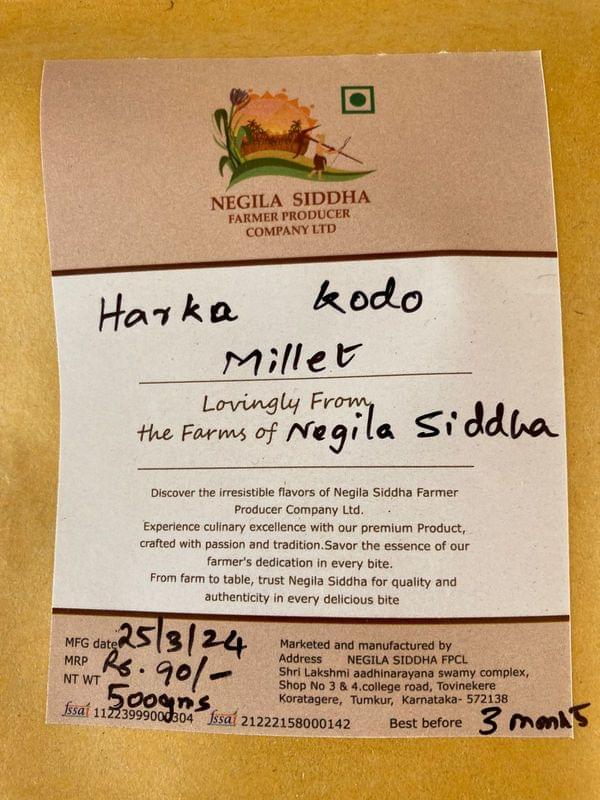 NEGILA SIDDHA
FARMER PRODUCER
COMPANY LTD
Harka kodo
Millet
Lovingly From
the Farms of Negila Siddha
Discover the irresistible flavors of Negila Siddha Farmer
Producer Company Ltd.
Experience culinary excellence with our premium Product,
crafted with passion and tradition.Savor the essence of our
farmer's dedication in every bite.
From farm to table, trust Negila Siddha for quality and
authenticity in every delicious bite
MFG date 25/3/24
MRP Rs. 90/-
NT WT 500gms
fssai 11223999000304 fssai 21222158000142
Marketed and manufactured by
Address NEGILA SIDDHA FPCL
Shri Lakshmi aadhinarayana swamy complex,
Shop No 3 & 4.college road, Tovinekere
Koratagere, Tumkur, Karnataka- 572138
Best before 3 months